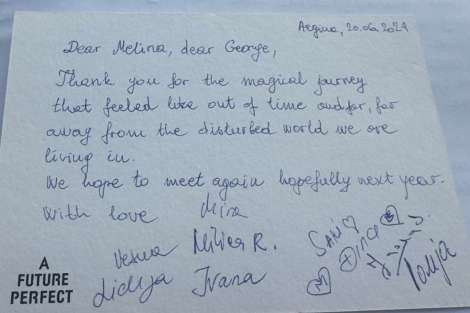 Aegina, 20.06.2024
Dear Melina, dear George,
Thank you for the magical journey
that feeled like out of time and far, far
away from the disturbed world we are
living in.
We hope to meet again hopefully next year.
With love Mira
Vesna Milica R.
Lidija Ivana
Tanja
A
FUTURE
PERFECT